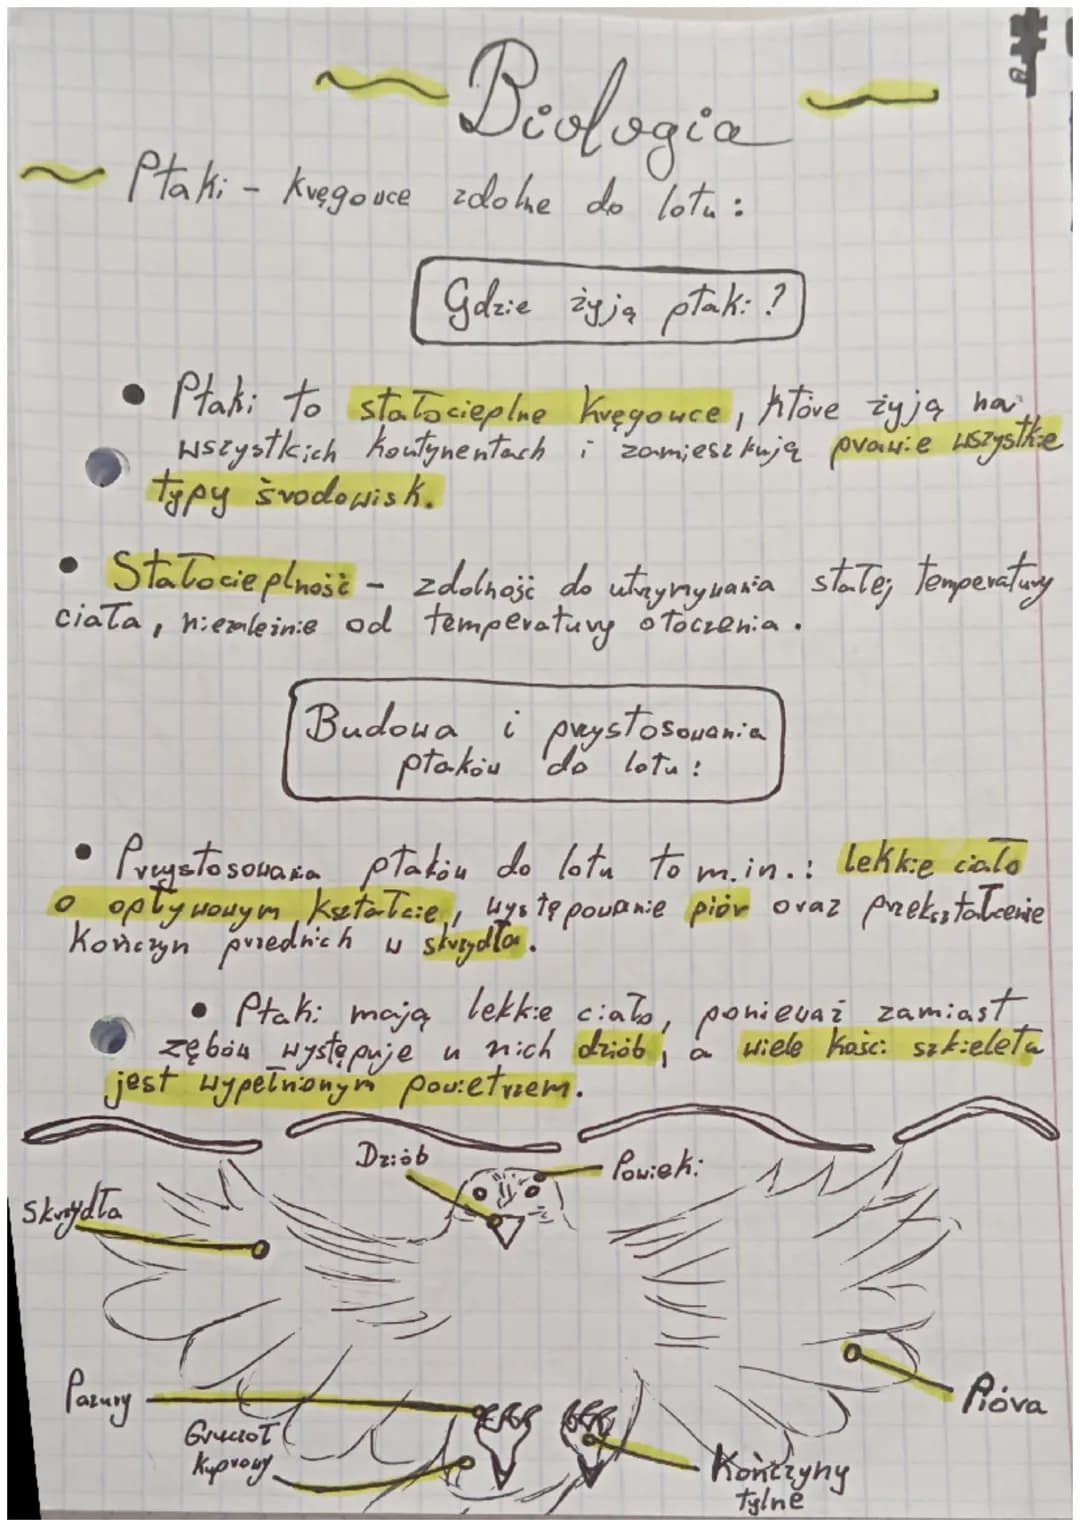 Biologia
Ptaki - kręgowce zdolne do lotu:
Gdzie żyją ptaki?
• Ptaki to stałocieplne kręgowce, które żyją na
wszystkich kontynentach i zamieszkują prawie wszystkie
typy środowisk.
• Stałocieplność - zdolność do utrzymywania stałej temperatury
ciała, niezależnie od temperatury otoczenia.
Budowa i przystosowania
ptaków do lotu:
• Przystosowania ptaków do lotu to m.in.: lekkie ciało
o opływowym kształcie, występowanie piór oraz przekształcenie
kończyn przednich w skrzydła.
• Ptaki mają lekkie ciało, ponieważ zamiast
zębów występuje u nich dziób, a wiele kości szkieleta
jest wypełnionym powietrzem.
Dziób
Powieki
Skrzydła
Pazury
Pióra
Gruczoł
Kuprowy
Kończyny
tylne